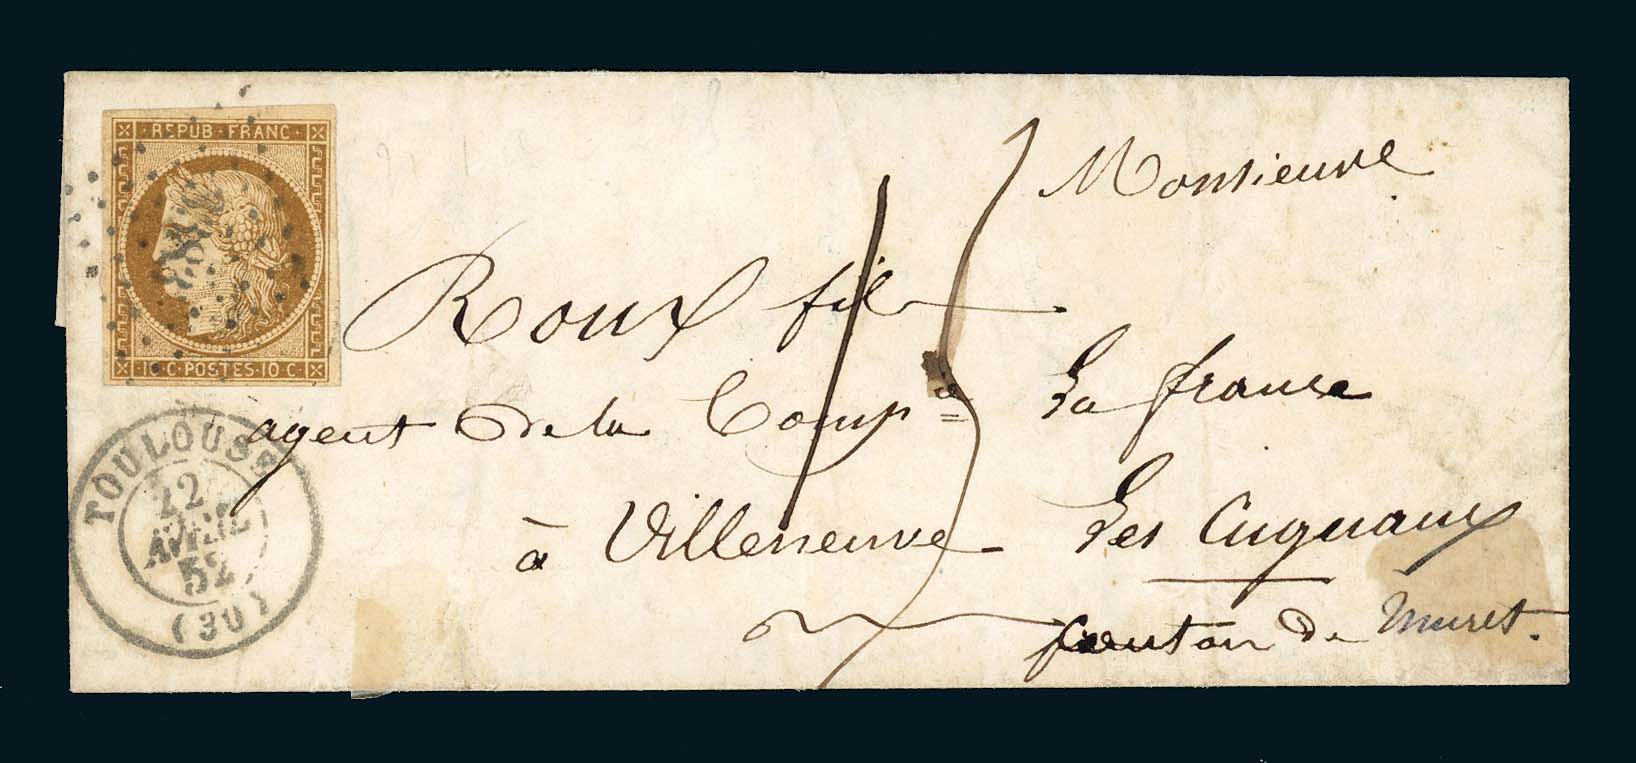 REPUB · FRANC ·
10 · C · POSTES · 10 · C ·
TOULOUSE
22
AVRIL
52
(30)
15
Monsieur
Roux fils
agent de la Comp.ie La france
à Villeneuve Les Cugnaux
Canton de Muret.